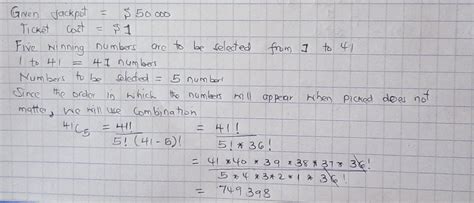 Given Jackpot = $50 000
Ticket Cost = $1
Five winning numbers are to be selected from 1 to 41
1 to 41 = 41 numbers
Numbers to be selected = 5 number
Since the order in which the numbers will appear when picked does not
matter, we will use combination
41C5 = 41! / 5! (41 - 5)! = 41! / 5! * 36!
= 41 * 40 * 39 * 38 * 37 * 36! / 5 * 4 * 3 * 2 * 1 * 36!
= 749 398